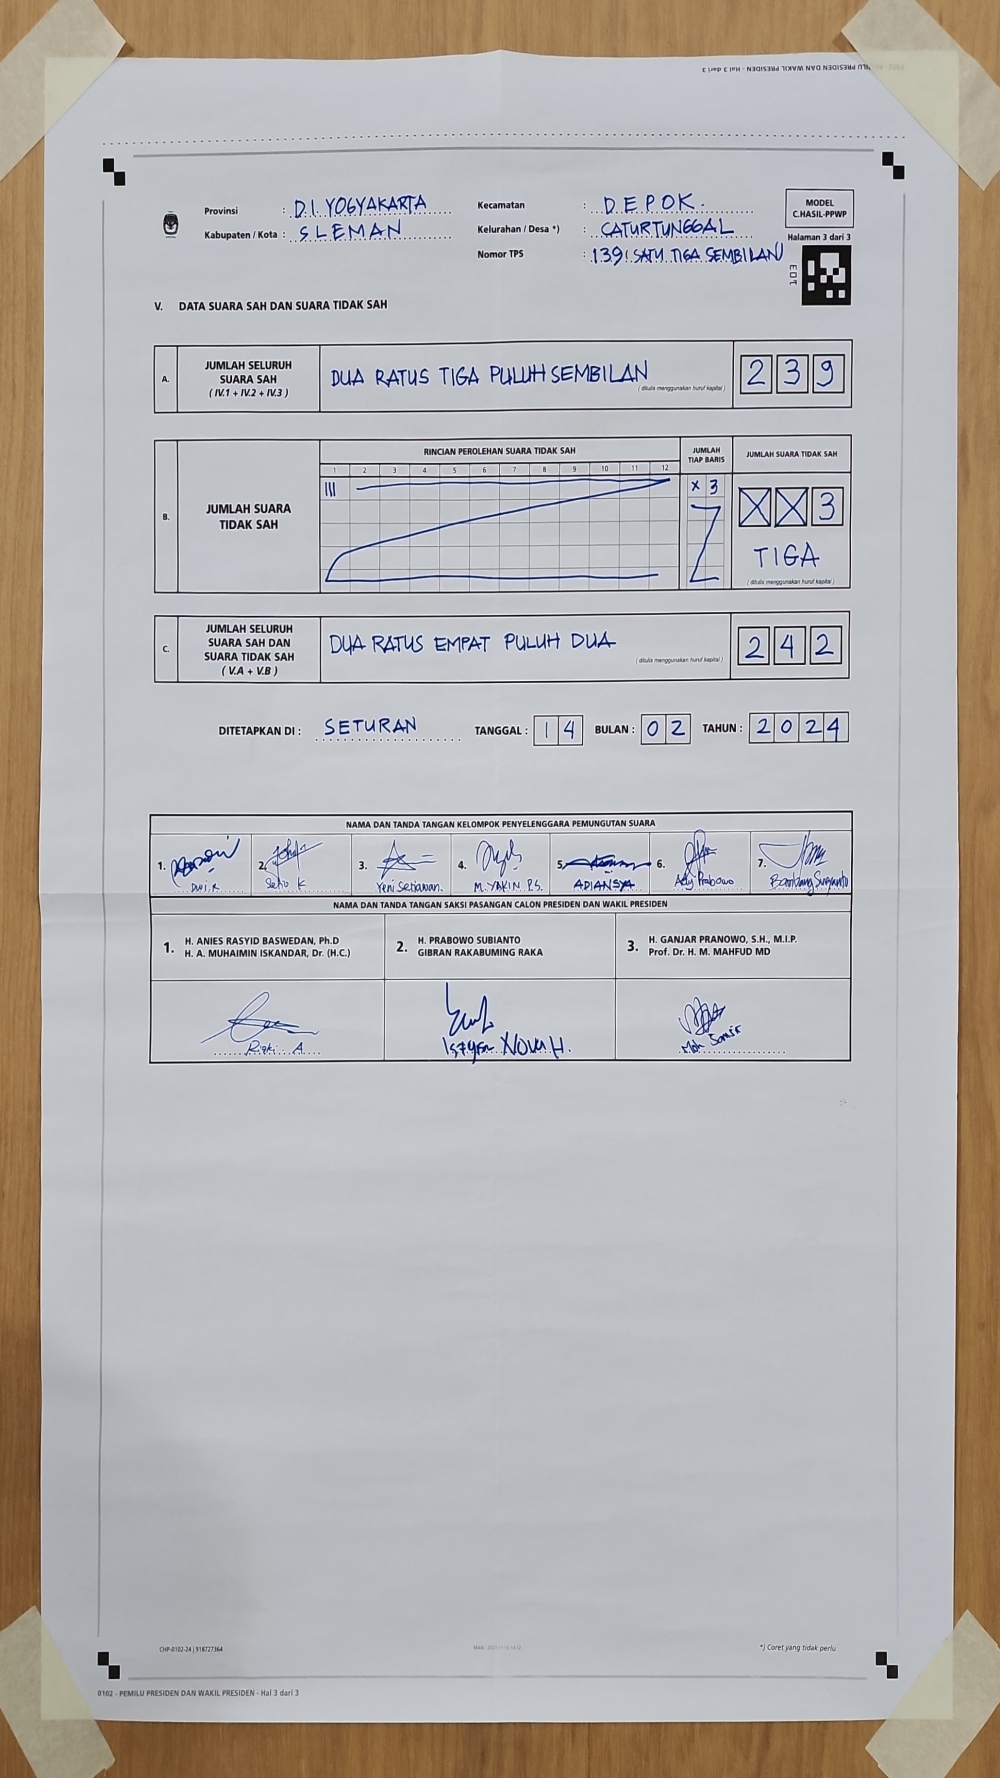 0102 - PEMILU PRESIDEN DAN WAKIL PRESIDEN - Hal 3 dari 3
Provinsi : D.I. YOGYAKARTA
Kabupaten / Kota : SLEMAN
Kecamatan : DEPOK.
Kelurahan / Desa *) : CATURTUNGGAL
Nomor TPS : 139 (SATU TIGA SEMBILAN)
MODEL
C.HASIL-PPWP
Halaman 3 dari 3
V. DATA SUARA SAH DAN SUARA TIDAK SAH
A. JUMLAH SELURUH SUARA SAH ( IV.1 + IV.2 + IV.3 )
DUA RATUS TIGA PULUH SEMBILAN
( ditulis menggunakan huruf kapital )
2 3 9
B. JUMLAH SUARA TIDAK SAH
RINCIAN PEROLEHAN SUARA TIDAK SAH
1 2 3 4 5 6 7 8 9 10 11 12
JUMLAH TIAP BARIS
JUMLAH SUARA TIDAK SAH
III
X 3
X X 3
TIGA
( ditulis menggunakan huruf kapital )
C. JUMLAH SELURUH SUARA SAH DAN SUARA TIDAK SAH ( V.A + V.B )
DUA RATUS EMPAT PULUH DUA
( ditulis menggunakan huruf kapital )
2 4 2
DITETAPKAN DI : SETURAN TANGGAL : 14 BULAN : 02 TAHUN : 2024
NAMA DAN TANDA TANGAN KELOMPOK PENYELENGGARA PEMUNGUTAN SUARA
1. 2. 3. 4. 5. 6. 7.
Dwi.R Setio K Yeni Setiawan. M. YAKIN P.S. ADIANSYA Ady Prabowo Bambang Sugianto
NAMA DAN TANDA TANGAN SAKSI PASANGAN CALON PRESIDEN DAN WAKIL PRESIDEN
1. H. ANIES RASYID BASWEDAN, Ph.D
H. A. MUHAIMIN ISKANDAR, Dr. (H.C.)
2. H. PRABOWO SUBIANTO
GIBRAN RAKABUMING RAKA
3. H. GANJAR PRANOWO, S.H., M.I.P.
Prof. Dr. H. M. MAHFUD MD
A
Novia H.
Moh Samir
CHP-0102-24 | 918727364
*) Coret yang tidak perlu
0102 - PEMILU PRESIDEN DAN WAKIL PRESIDEN - Hal 3 dari 3